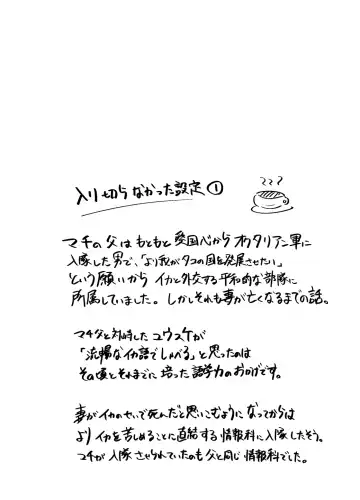 入り切らなかった設定①
マチの父はもともと愛国心からオクタリアン軍に
入隊した男で、「より我がタコの国を発展させたい」
という願いから イカと外交する平和的な部隊に
所属していました。しかしそれも妻が亡くなるまでの話。
マチ父と対峙したユウスケが
「流暢なイカ語でしゃべる」と思ったのは
その頃とそれまでに培った語学力のおかげです。
妻がイカのせいで死んだと思いこむようになってからは
よりイカを苦しめることに直結する情報科に入隊したそう。
マチが入隊させられていたのも父と同じ情報科でした。